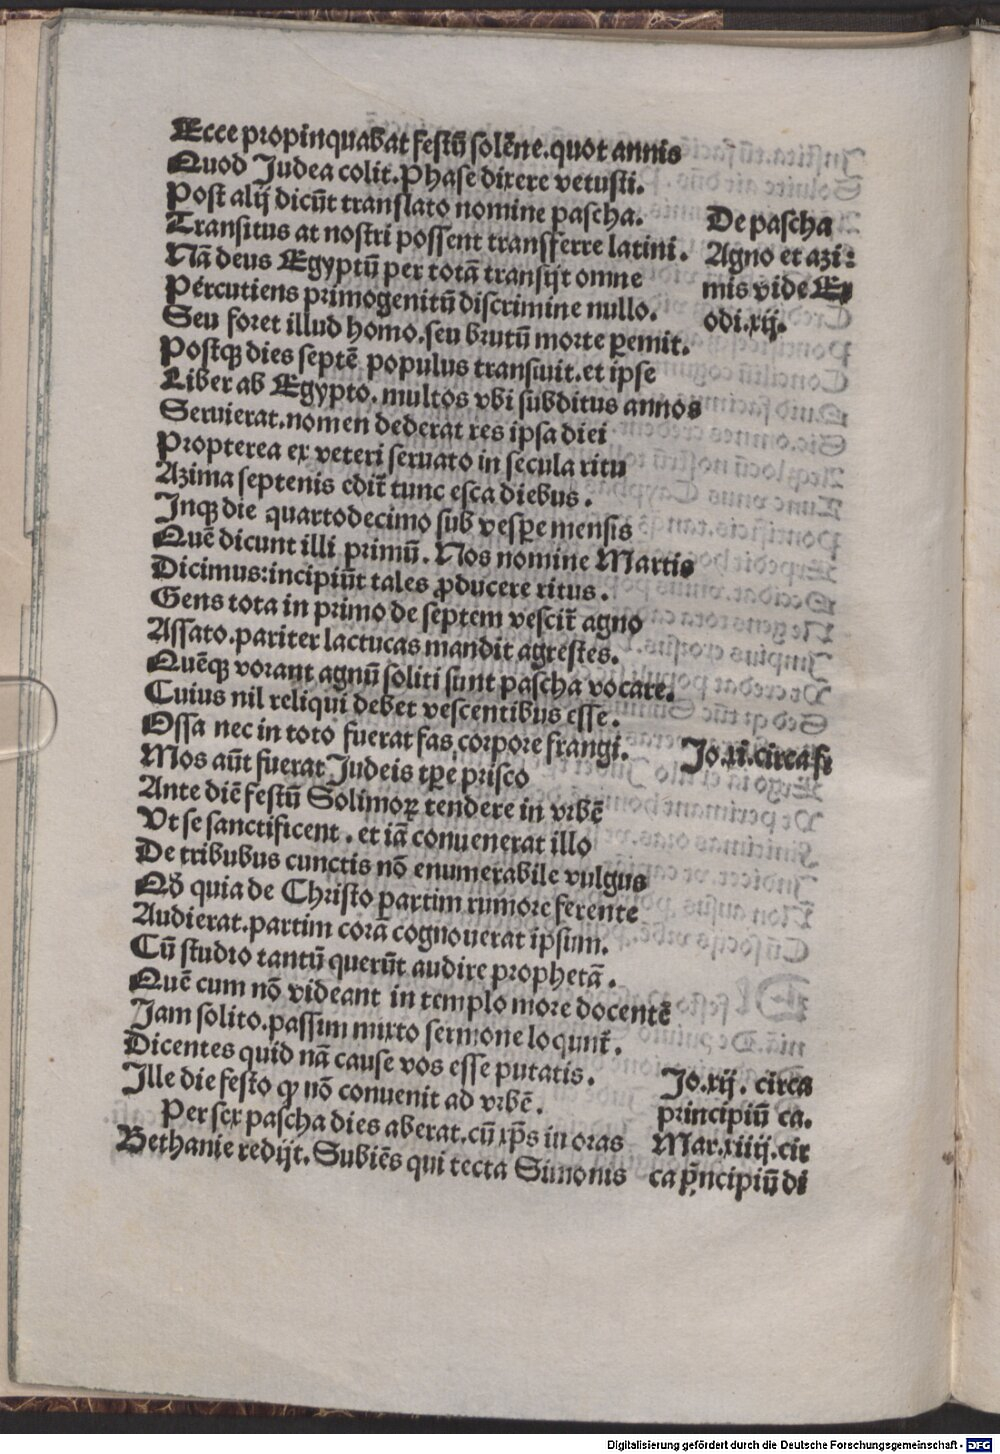 Ecce propinquabat festū solēne.quot annis
Quod Judea colit.Phase dixere vetusti.
Post alij dicūt translato nomine pascha.
Transitus at nostri possent transferre latini.
Nā deus Egyptū per totā transijt omne
Percutiens primogenitū discrimine nullo.
Seu foret illud homo.seu brutū morte ꝑemit.
Postqꝫ dies septē populus transiuit.et ipse
Liber ab Egypto.multos vbi subditus annos
Seruierat.nomen dederat res ipsa diei
Propterea ex veteri seruato in secula ritu
Azima septenis edit̄ tunc esca diebus.
Inqꝫ die quartodecimo sub vesꝑe mensis
Quē dicunt illi primū. Nos nomine Martis
Dicimus:incipiūt tales ꝓducere ritus.
Gens tota in primo de septem vescit̄ agno
Assato.pariter lactucas mandit agrestes.
Quēqꝫ vorant agnū soliti sunt pascha vocare.
Cuius nil reliqui debet vescentibus esse.
Ossa nec in toto fuerat fas corpore frangi.
Mos aūt fuerat Judeis tꝑe prisco
Ante diē festū Solimoꝝ tendere in vrbē
Vt se sanctificent.et iā conuenerat illo
De tribubus cunctis nō enumerabile vulgus
Qđ quia de Christo partim rumore ferente
Audierat.partim corā cognouerat ipsum.
Cū studio tantū querūt audire prophetā.
Quē cum nō videant in templo more docentē
Jam solito.passim mixto sermone loqunt̄.
Dicentes quid nā cause vos esse putatis.
Ille die festo ꝙ nō convenit ad vrbē.
Per sex pascha dies aberat.cū xp̄s in oras
Bethanie redijt.Subiēs qui tecta Simonis
De pascha
Agno et azi:
mis vide Ex
odi.xij.
Jo.xi.circa fi
Jo.xij. circa
principiū ca.
Mar.xiiij.cir
ca pͥncipiū di
Digitalisierung gefördert durch die Deutsche Forschungsgemeinschaft - DFG